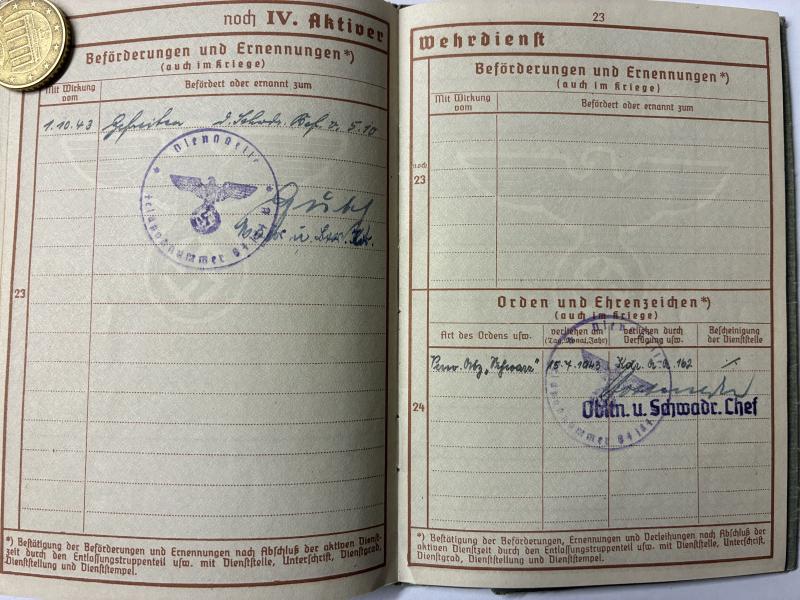 noch IV. Aktiver
Beförderungen und Ernennungen*)
(auch im Kriege)
Mit Wirkung
vom
Befördert oder ernannt zum
1.10.43 Gefreiten d. Schwdr. Bef. v. 5.10
Dienststelle
Feldpostnummer
u.
23
*) Bestätigung der Beförderungen und Ernennungen nach Abschluß der aktiven Dienst-
zeit durch den Entlassungstruppenteil usw. mit Dienststelle, Unterschrift, Dienstgrad,
Dienststellung und Dienststempel.
23
Wehrdienst
Beförderungen und Ernennungen*)
(auch im Kriege)
Mit Wirkung
vom
Befördert oder ernannt zum
noch
23
Orden und Ehrenzeichen*)
(auch im Kriege)
Art des Ordens usw.
verliehen am
(Tag, Monat, Jahr)
verliehen durch
Verfügung usw.
Bescheinigung
der Dienststelle
Verw. Abz. „Schwarz" 15.7.1943 Kdr. A.A. 162
Dienststelle
Feldpostnummer
Obltn. u. Schwadr. Chef
24
*) Bestätigung der Beförderungen, Ernennungen und Verleihungen nach Abschluß der
aktiven Dienstzeit durch den Entlassungstruppenteil usw. mit Dienststelle, Unterschrift,
Dienstgrad, Dienststellung und Dienststempel.